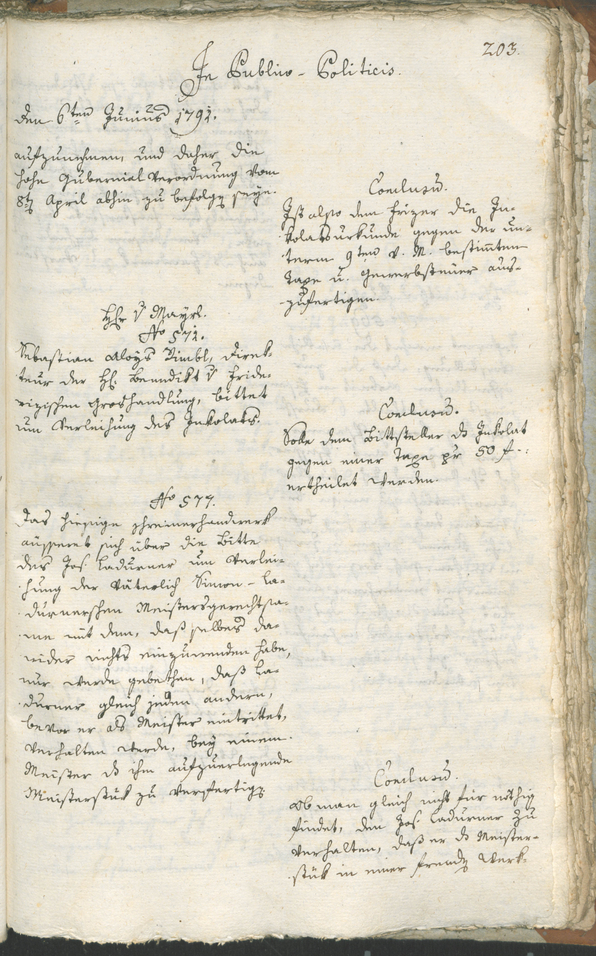 203.
In Publico-Politicis.
den 6ten Junius 1791.
aufzunehmen, und daher die
hohe Gubernial Verordnung vom
8ten April abhin zu befolgen seye.
Conclusum.
Ist also dem Frizer die In-
kolatsurkunde gegen der un-
term 9ten v. M. bestimmten
Taxe u. Gewerbsteuer aus-
zufertigen.
Hr. v. Mayrl.
No 571.
Sebastian Aloys Rimbl, Direk-
teur der H. Benedikt v. Fride-
rizischen Großhandlung, bittet
um Verleihung des Inkolats.
Conclusum.
Solle dem Bittsteller das Inkolat
gegen einer Taxe pr 50 f.
ertheilet werden.
No 577.
Das hiesige Schreinerhandwerk
äusseret sich über die Bitte
des Jos. Ladurner um Verlei-
hung der väterlich Simon-La-
durnerschen Meistersgerechtsa-
me mit dem, daß selbes da-
wider nichts einzuwenden habe,
nur werde gebethen, daß La-
durner gleich jeden andern,
bevor er als Meister eintrittet,
verhalten werde, bey einem
Meister das ihm aufzuerlegende
Meisterstük zu verfertigen
Conclusum.
Ob man gleich nicht für nöthig
findet, den Jos. Ladurner zu
verhalten, daß er das Meister-
stük in einer fremden Werk-